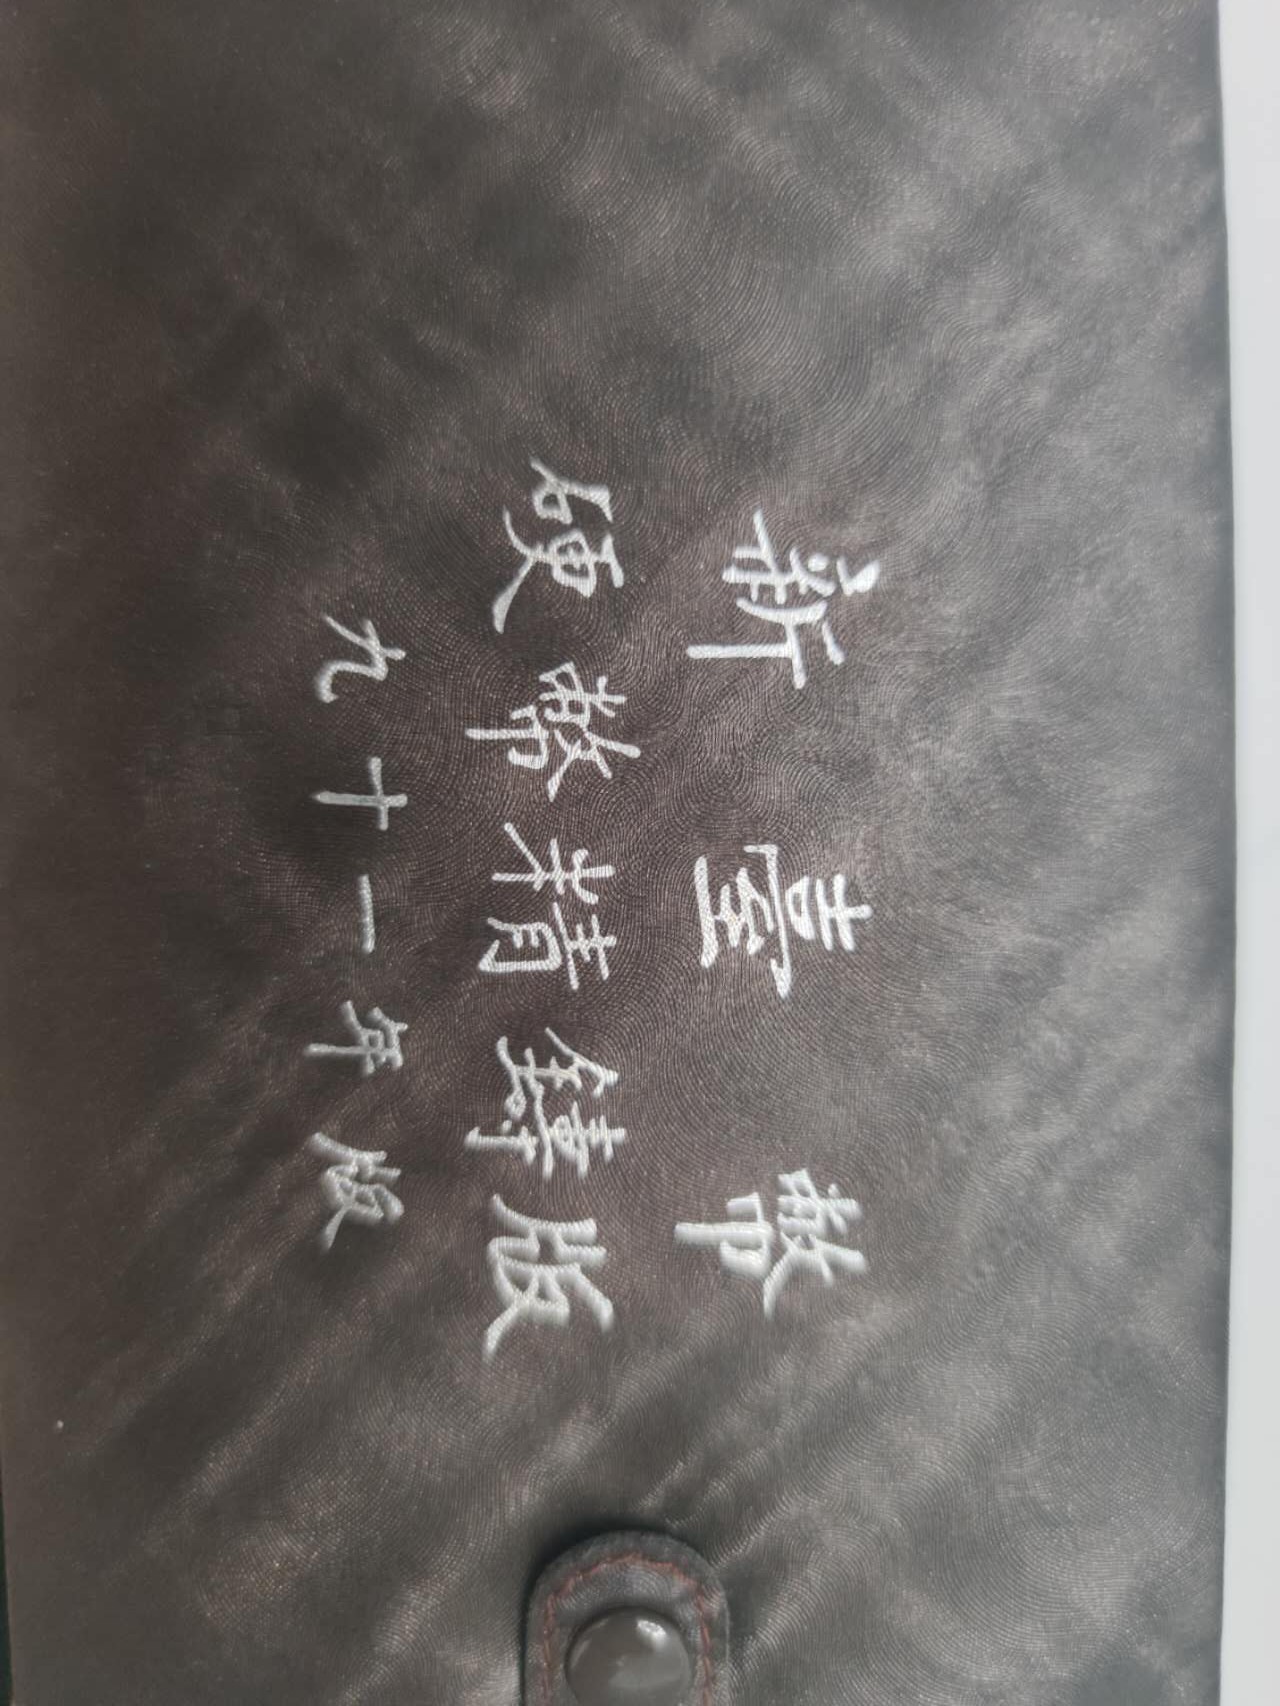 新臺幣
硬幣精鑄版
九十一年版